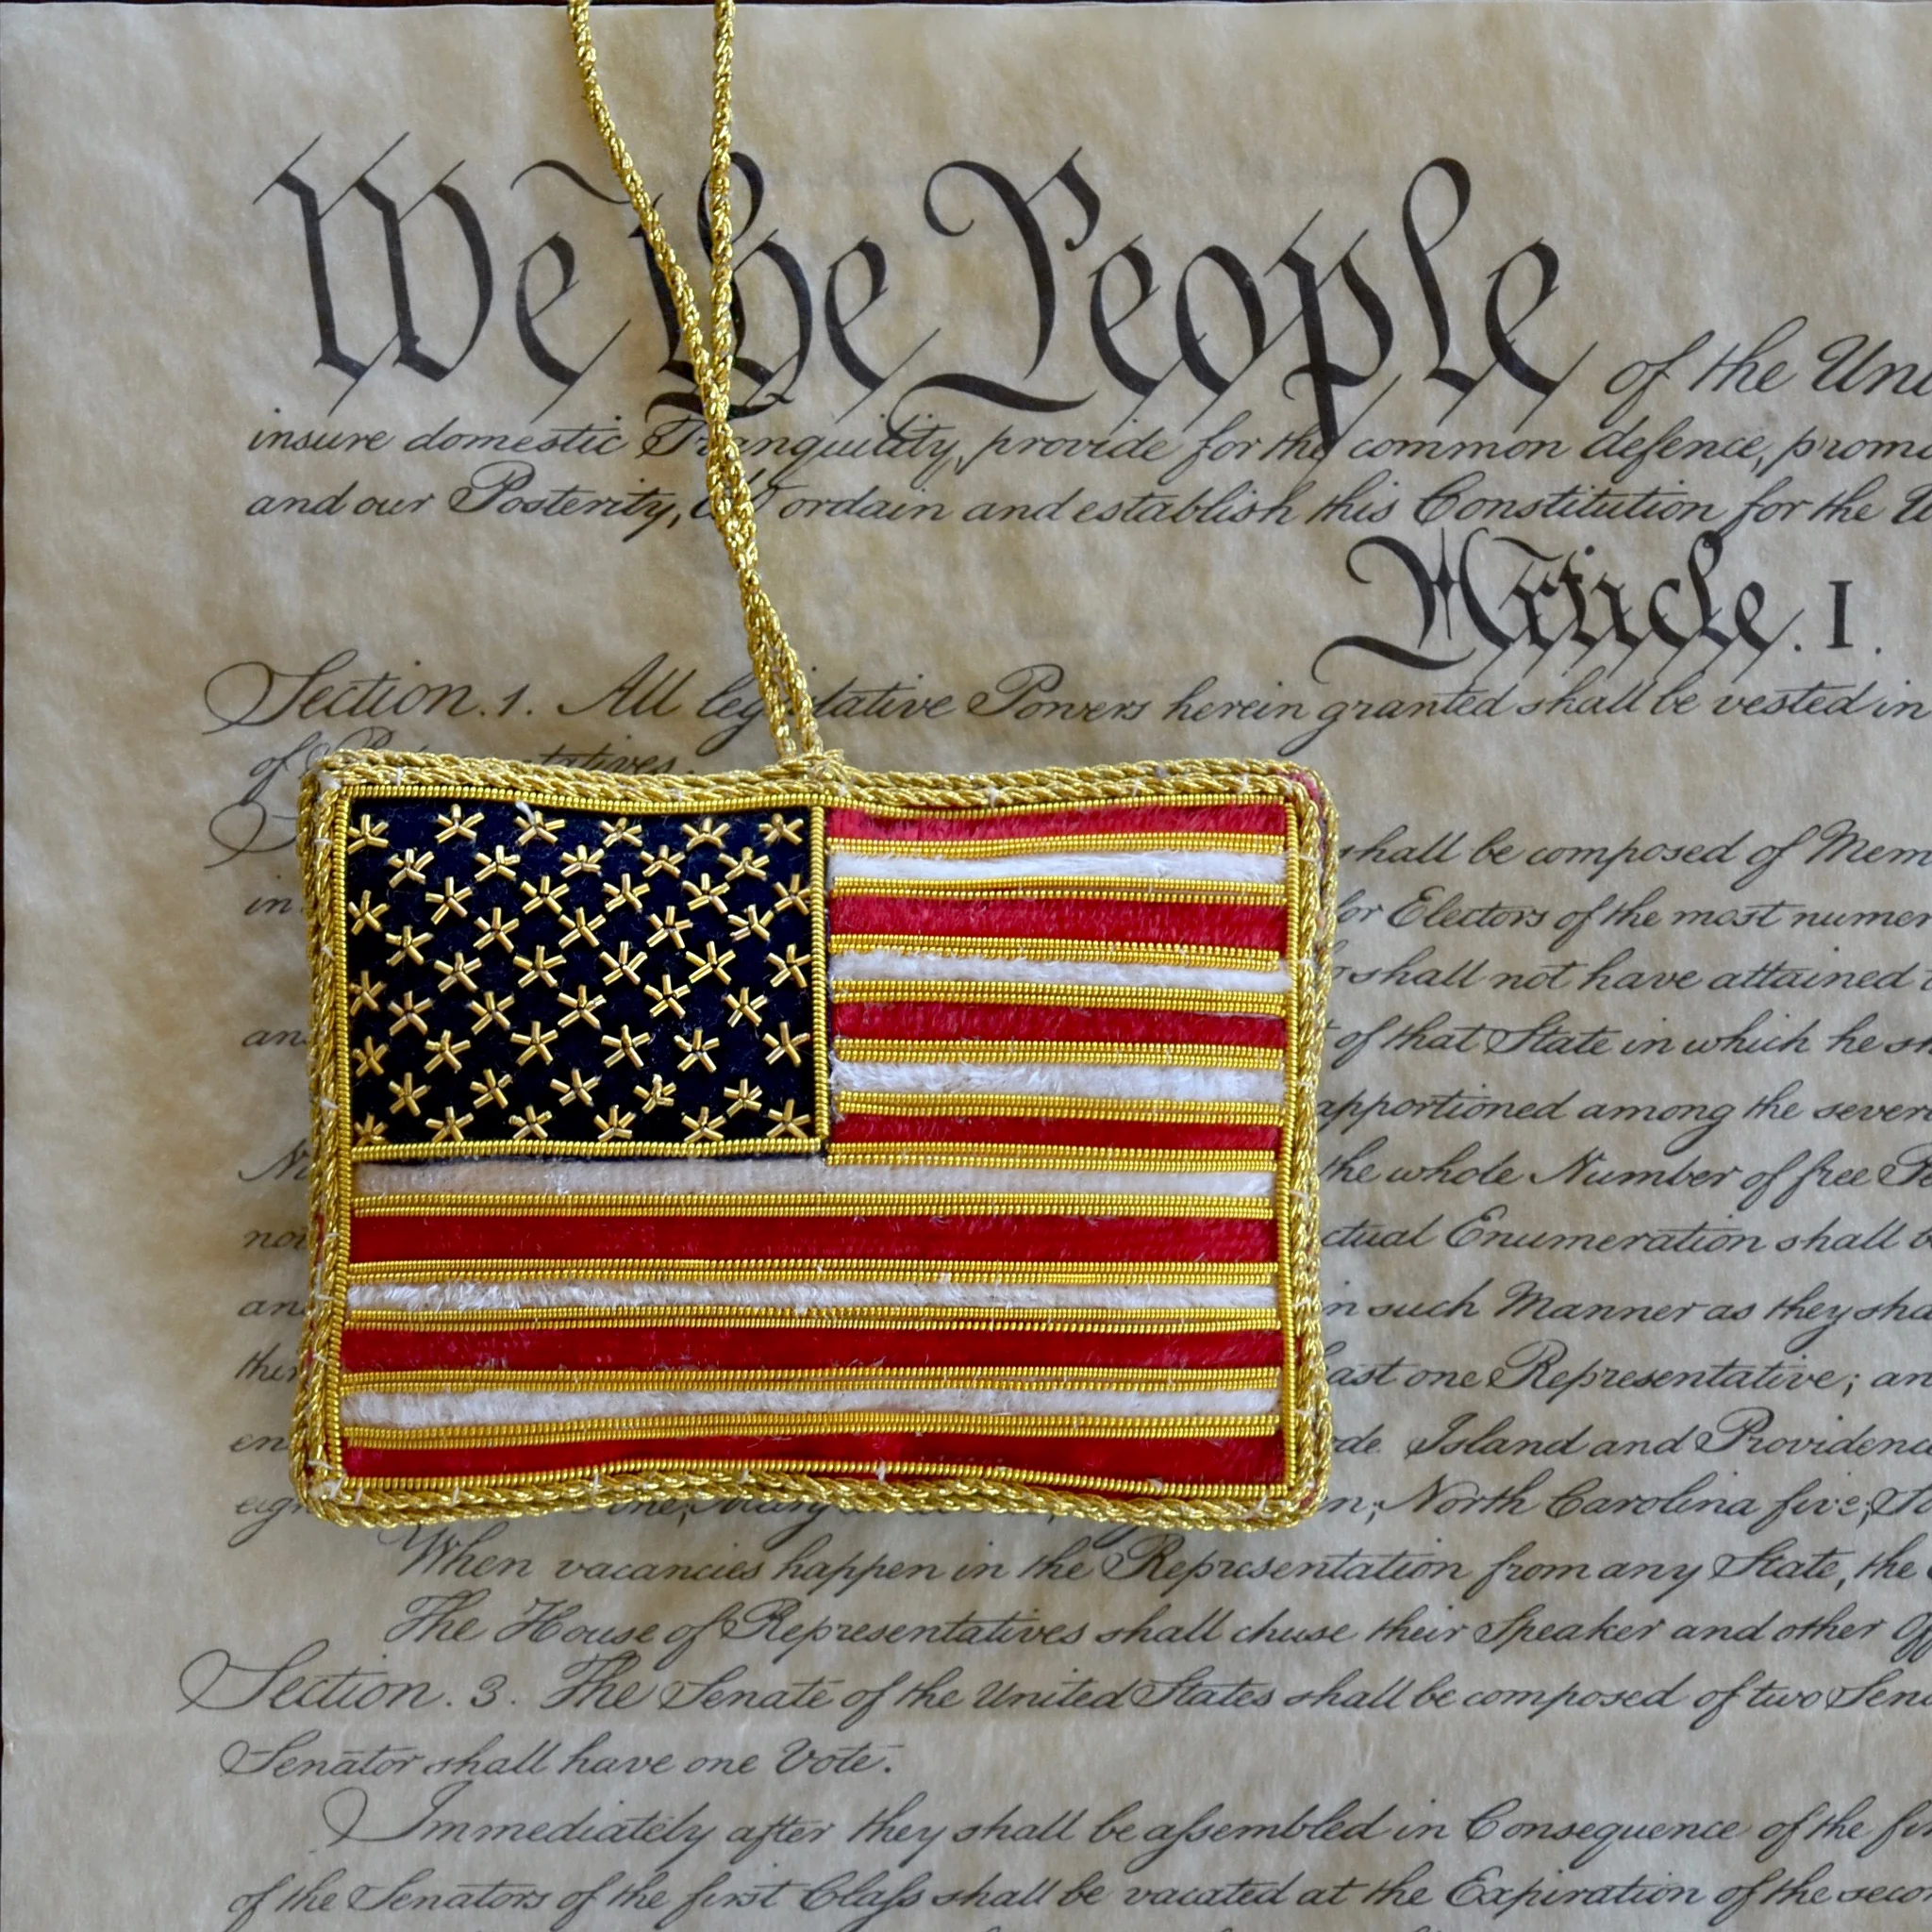 We the People of the Uni
insure domestic Tranquility, provide for the common defence, promo
and our Posterity, do ordain and establish this Constitution for the U
Article. I.
Section. 1. All legislative Powers herein granted shall be vested in
of Representatives.
shall be composed of Mem
in for Electors of the most numer
shall not have attained
an of that State in which he sh
apportioned among the sever
the whole Number of free Pe
not ctual Enumeration shall b
and in such Manner as they sha
ast one Representative; an
en de Island and Providenc
eigh one, Mary n; North Carolina five,
When vacancies happen in the Representation from any State, the
The House of Representatives shall chuse their Speaker and other Off
Section. 3. The Senate of the United States shall be composed of two Sen
Senator shall have one Vote.
Immediately after they shall be assembled in Consequence of the fir
of the Senators of the first Class shall be vacated at the Expiration of the seco